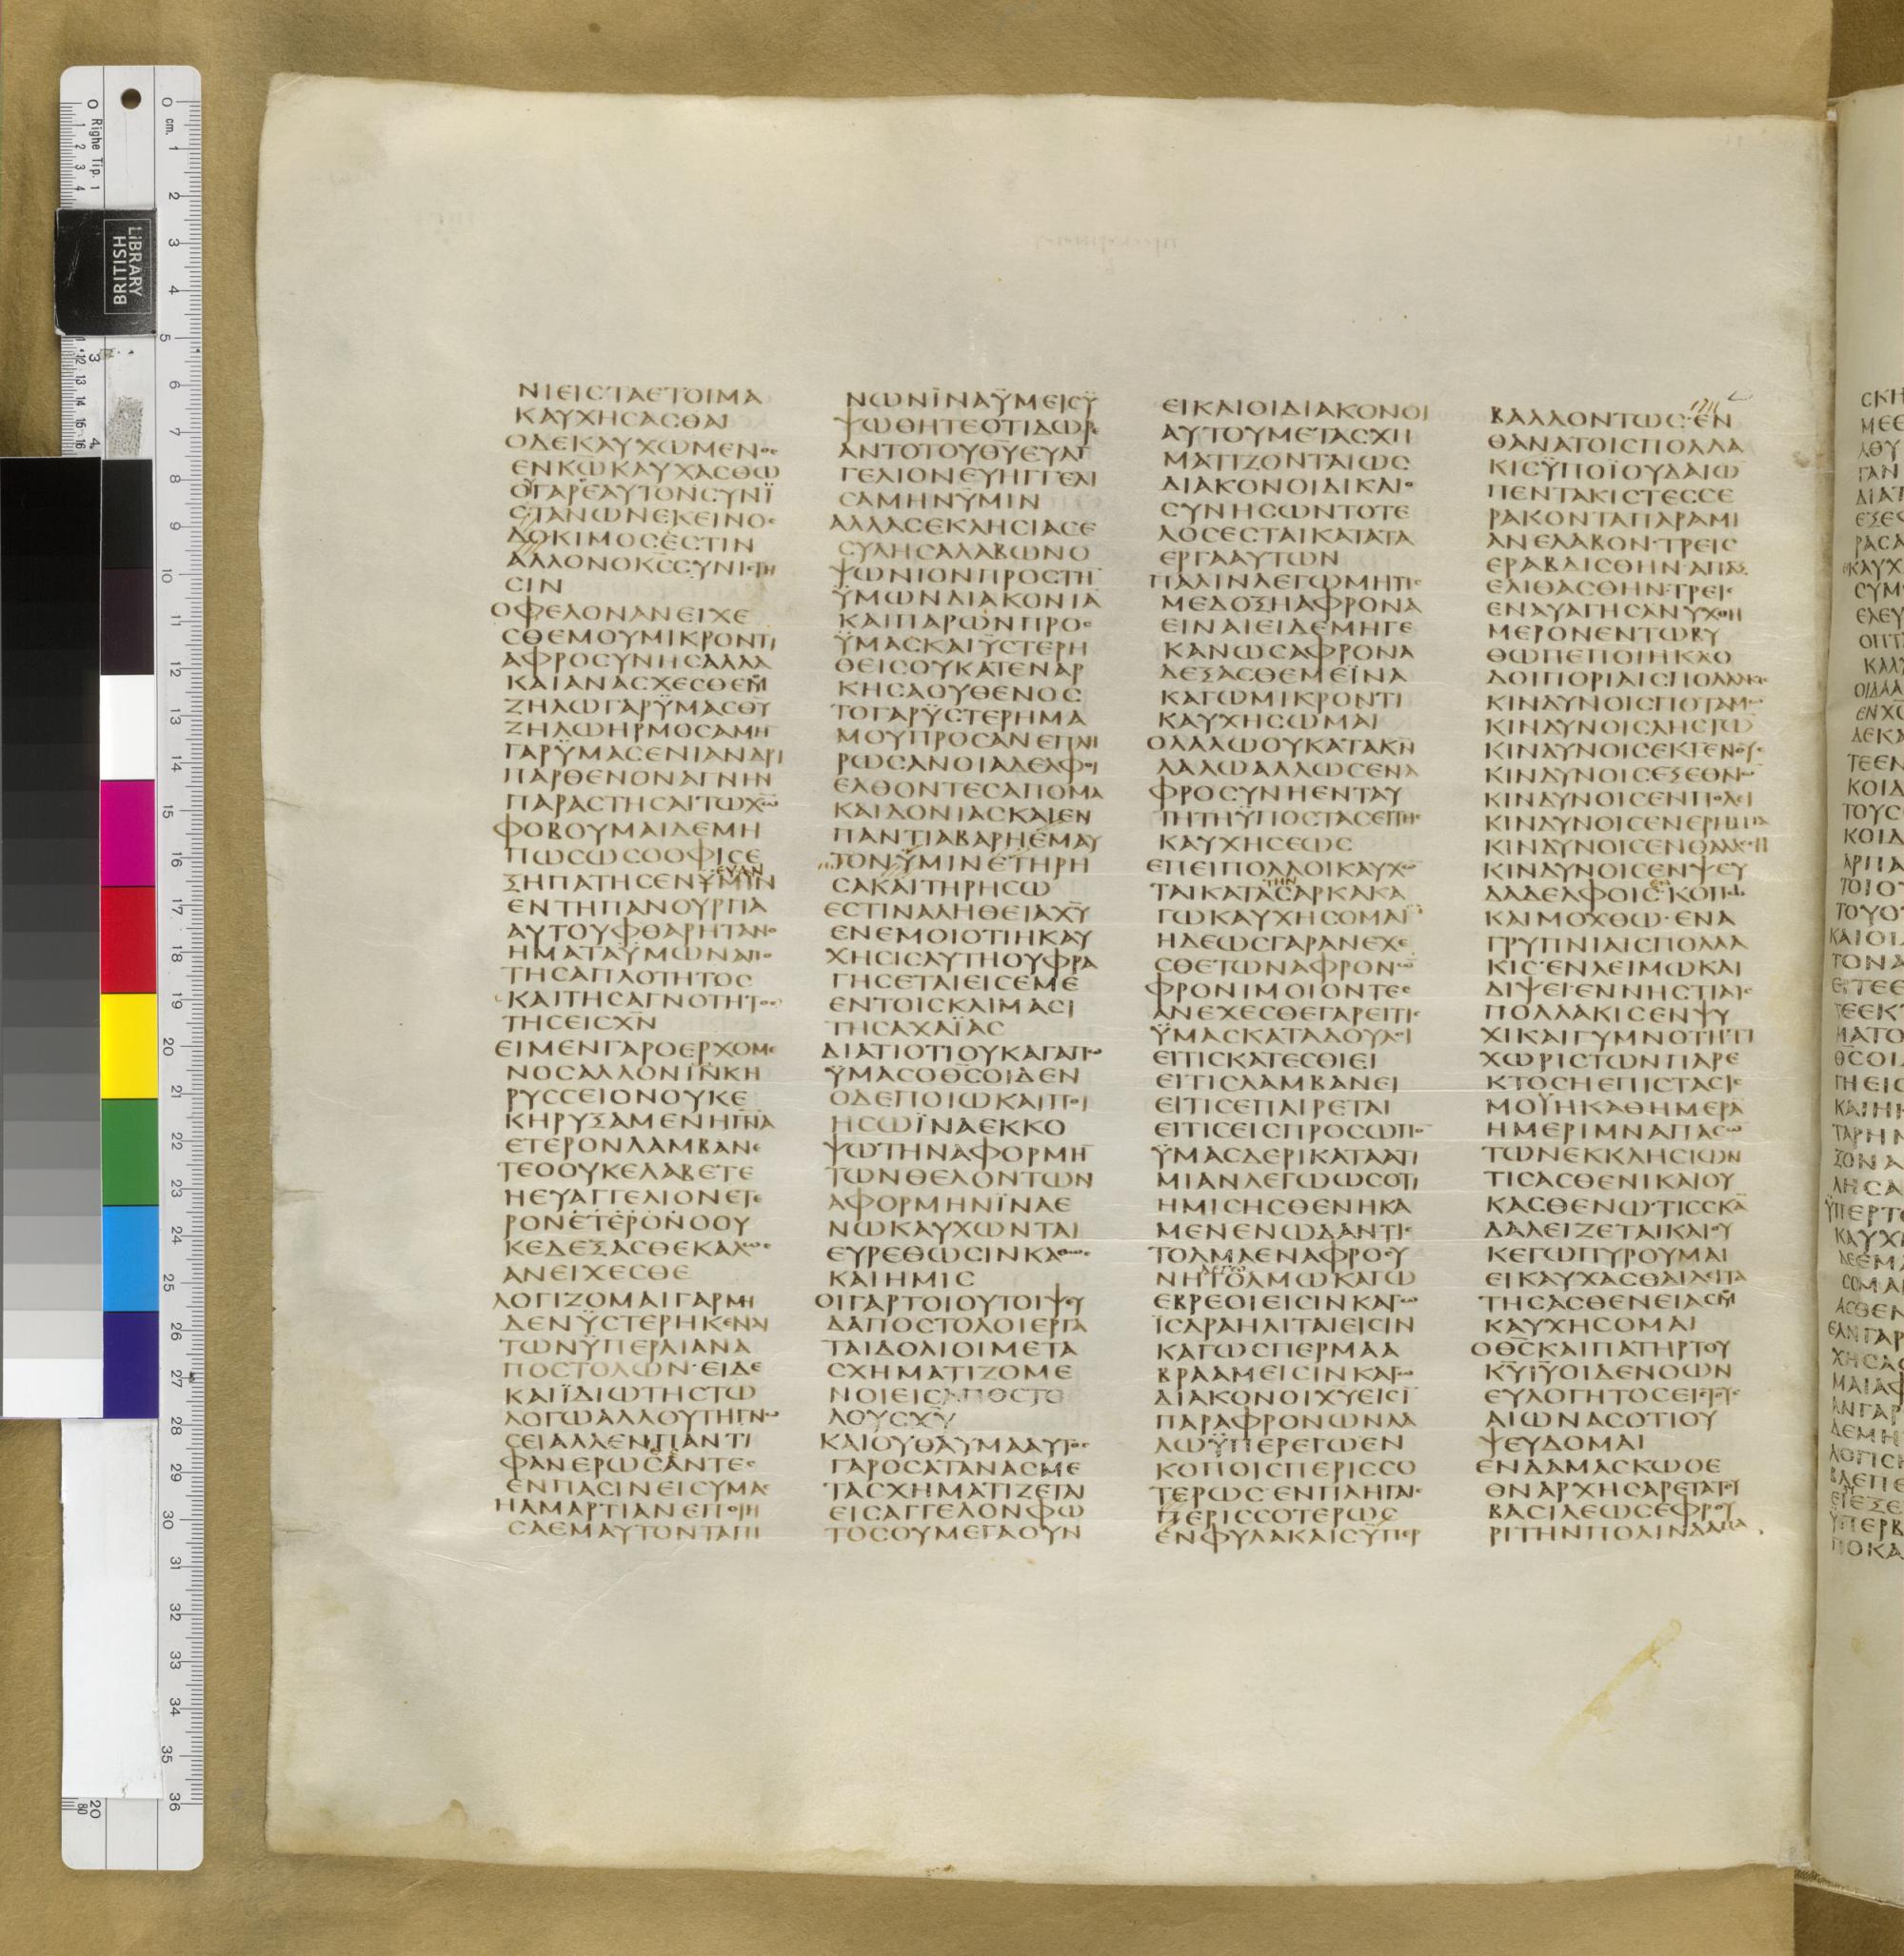 ΝΙΕΙϹΤΑΕΤΟΙΜΑ
ΚΑΥΧΗϹΑϹΘΑΙ
ΟΔΕΚΑΥΧΩΜΕΝΟϹ
ΕΝΚΩΚΑΥΧΑϹΘΩ
ΟΓΑΡΕΑΥΤΟΝϹΥΝΪ
ϹΤΑΝΩΝΕΚΕΙΝΟϹ
ΔΟΚΙΜΟϹΕϹΤΙΝ
ΑΛΛΟΝΟΚ̅Ϲ̅ϹΥΝΙϹΤΗ
ϹΙΝ
ΟΦΕΛΟΝΑΝΕΙΧΕ
ϹΘΕΜΟΥΜΙΚΡΟΝΤΙ
ΑΦΡΟϹΥΝΗϹΑΛΛΑ
ΚΑΙΑΝΑϹΧΕϹΘΕΜΟΥ
ΖΗΛΩΓΑΡΫΜΑϹΘΥ
ΖΗΛΩΗΡΜΟϹΑΜΗ
ΓΑΡΫΜΑϹΕΝΙΑΝΔΡΙ
ΠΑΡΘΕΝΟΝΑΓΝΗΝ
ΠΑΡΑϹΤΗϹΑΙΤΩΧ̅Ω̅
ΦΟΒΟΥΜΑΙΔΕΜΗ
ΠΩϹΩϹΟΟΦΙϹΕ
ΕΥΑΝ
ΞΗΠΑΤΗϹΕΝΫΜΙΝ
ΕΝΤΗΠΑΝΟΥΡΓΙΑ
ΑΥΤΟΥΦΘΑΡΗΤΑΝΟ
ΗΜΑΤΑΫΜΩΝΑΠΟ
ΤΗϹΑΠΛΟΤΗΤΟϹ
ΚΑΙΤΗϹΑΓΝΟΤΗΤΟϹ
ΤΗϹΕΙϹΧ̅Ν̅
ΕΙΜΕΝΓΑΡΟΕΡΧΟΜΕ
ΝΟϹΑΛΛΟΝΙΝ̅ΚΗ
ΡΥϹϹΕΙΟΝΟΥΚΕ
ΚΗΡΥΞΑΜΕΝΗΠ̅Ν̅Α̅
ΕΤΕΡΟΝΛΑΜΒΑΝΕ
ΤΕΟΟΥΚΕΛΑΒΕΤΕ
ΗΕΥΑΓΓΕΛΙΟΝΕΤΕ
ΡΟΝΕΤΕΡΟΝΟΟΥ
ΚΕΔΕΞΑϹΘΕΚΑΛΩϹ
ΑΝΕΙΧΕϹΘΕ
ΛΟΓΙΖΟΜΑΙΓΑΡΜΗ
ΔΕΝΫϹΤΕΡΗΚΕΝΑΙ
ΤΩΝΫΠΕΡΛΙΑΝΑ
ΠΟϹΤΟΛΩΝ·ΕΙΔΕ
ΚΑΙΪΔΙΩΤΗϹΤΩ
ΛΟΓΩΑΛΛΟΥΤΗΓΝΩ
ϹΕΙΑΛΛΕΝΠΑΝΤΙ
ΦΑΝΕΡΩϹΑΝΤΕϹ
ΕΝΠΑϹΙΝΕΙϹΥΜΑϹ
ΗΑΜΑΡΤΙΑΝΕΠΟΙΗ
ϹΑΕΜΑΥΤΟΝΤΑΠΙ
ΝΩΝΪΝΑΫΜΕΙϹΫ
ΨΩΘΗΤΕΟΤΙΔΩΡΕ
ΑΝΤΟΤΟΥΘ̅Υ̅ΕΥΑΓ
ΓΕΛΙΟΝΕΥΗΓΓΕΛΙ
ϹΑΜΗΝΫΜΙΝ
ΑΛΛΑϹΕΚΛΗϹΙΑϹΕ
ϹΥΛΗϹΑΛΑΒΩΝΟ
ΨΩΝΙΟΝΠΡΟϹΤΗ̅
ΫΜΩΝΔΙΑΚΟΝΙΑ̅
ΚΑΙΠΑΡΩΝΠΡΟϹ
ΫΜΑϹΚΑΙΫϹΤΕΡΗ
ΘΕΙϹΟΥΚΑΤΕΝΑΡ
ΚΗϹΑΟΥΘΕΝΟϹ
ΤΟΓΑΡΫϹΤΕΡΗΜΑ
ΜΟΥΠΡΟϹΑΝΕΠΛΗ
ΡΩϹΑΝΟΙΑΔΕΛΦΟΙ
ΕΛΘΟΝΤΕϹΑΠΟΜΑ
ΚΑΙΔΟΝΙΑϹΚΑΙΕΝ
ΠΑΝΤΙΑΒΑΡΗΕΜΑΥ
ΤΟΝΫΜΙΝΕΤΗΡΗ
ϹΑΚΑΙΤΗΡΗϹΩ
ΕϹΤΙΝΑΛΗΘΕΙΑΧ̅Υ̅
ΕΝΕΜΟΙΟΤΙΗΚΑΥ
ΧΗϹΙϹΑΥΤΗΟΥΦΡΑ
ΓΗϹΕΤΑΙΕΙϹΕΜΕ
ΕΝΤΟΙϹΚΛΙΜΑϹΙ
ΤΗϹΑΧΑΪΑϹ
ΔΙΑΤΙΟΤΙΟΥΚΑΓΑΠΩ
ΫΜΑϹΟΘ̅Ϲ̅ΟΙΔΕΝ
ΟΔΕΠΟΙΩΚΑΙΠΟΙ
ΗϹΩΪΝΑΕΚΚΟ
ΨΩΤΗΝΑΦΟΡΜΗ̅
ΤΩΝΘΕΛΟΝΤΩΝ
ΑΦΟΡΜΗΝΪΝΑΕ
ΝΩΚΑΥΧΩΝΤΑΙ
ΕΥΡΕΘΩϹΙΝΚΑΘΩϹ
ΚΑΙΗΜΙϹ
ΟΙΓΑΡΤΟΙΟΥΤΟΙΨΕΥ
ΔΑΠΟϹΤΟΛΟΙΕΡΓΑ
ΤΑΙΔΟΛΙΟΙΜΕΤΑ
ϹΧΗΜΑΤΙΖΟΜΕ
ΝΟΙΕΙϹΑΠΟϹΤΟ
ΛΟΥϹΧ̅Υ̅
ΚΑΙΟΥΘΑΥΜΑΑΥΤΟϹ
ΓΑΡΟϹΑΤΑΝΑϹΜΕ
ΤΑϹΧΗΜΑΤΙΖΕΤΑΙ
ΕΙϹΑΓΓΕΛΟΝΦΩ
ΤΟϹΟΥΜΕΓΑΟΥΝ
ΕΙΚΑΙΟΙΔΙΑΚΟΝΟΙ
ΑΥΤΟΥΜΕΤΑϹΧΗ
ΜΑΤΙΖΟΝΤΑΙΩϹ
ΔΙΑΚΟΝΟΙΔΙΚΑΙΟ
ϹΥΝΗϹΩΝΤΟΤΕ
ΛΟϹΕϹΤΑΙΚΑΤΑΤΑ
ΕΡΓΑΑΥΤΩΝ
ΠΑΛΙΝΛΕΓΩΜΗΤΙϹ
ΜΕΔΟΞΗΑΦΡΟΝΑ
ΕΙΝΑΙΕΙΔΕΜΗΓΕ
ΚΑΝΩϹΑΦΡΟΝΑ
ΔΕΞΑϹΘΕΜΕΪΝΑ
ΚΑΓΩΜΙΚΡΟΝΤΙ
ΚΑΥΧΗϹΩΜΑΙ
ΟΛΑΛΩΟΥΚΑΤΑΚ̅Ν̅
ΛΑΛΩΑΛΛΩϹΕΝΑ
ΦΡΟϹΥΝΗΕΝΤΑΥ
ΤΗΤΗΫΠΟϹΤΑϹΕΙΤΗϹ
ΚΑΥΧΗϹΕΩϹ
ΕΠΕΙΠΟΛΛΟΙΚΑΥΧΩ̅
ΤΗΝ
ΤΑΙΚΑΤΑϹΑΡΚΑΚΑ
ΓΩΚΑΥΧΗϹΟΜΑΙ
ΗΔΕΩϹΓΑΡΑΝΕΧΕ
ϹΘΕΤΩΝΑΦΡΟΝΩ̅
ΦΡΟΝΙΜΟΙΟΝΤΕϹ
ΑΝΕΧΕϹΘΕΓΑΡΕΙΤΙϹ
ΫΜΑϹΚΑΤΑΔΟΥΛΟΙ
ΕΙΤΙϹΚΑΤΕϹΘΙΕΙ
ΕΙΤΙϹΛΑΜΒΑΝΕΙ
ΕΙΤΙϹΕΠΑΙΡΕΤΑΙ
ΕΙΤΙϹΕΙϹΠΡΟϹΩΠΟ̅
ΫΜΑϹΔΕΡΙΚΑΤΑΑΤΙ
ΜΙΑΝΛΕΓΩΩϹΟΤΙ
ΗΜΙϹΗϹΘΕΝΗΚΑ
ΜΕΝΕΝΩΔΑΝΤΙϹ
ΤΟΛΜΑΕΝΑΦΡΟϹΥ
ΛΕΓΩ
ΝΗΤΟΛΜΩΚΑΓΩ
ΕΒΡΕΟΙΕΙϹΙΝΚΑΓΩ
ΙϹΔΡΑΗΛΙΤΑΙΕΙϹΙΝ
ΚΑΓΩϹΠΕΡΜΑΑ
ΒΡΑΑΜΕΙϹΙΝΚΑΓΩ
ΔΙΑΚΟΝΟΙΧ̅Υ̅ΕΙϹΙ̅
ΠΑΡΑΦΡΟΝΩΝΛΑ
ΛΩΫΠΕΡΕΓΩΕΝ
ΚΟΠΟΙϹΠΕΡΙϹϹΟ
ΤΕΡΩϹ·ΕΝΠΛΗΓΑΙϹ
ΠΕΡΙϹϹΟΤΕΡΩϹ
ΕΝΦΥΛΑΚΑΙϹΫΠΕΡ
ΒΑΛΛΟΝΤΩϹ·ΕΝ
ΘΑΝΑΤΟΙϹΠΟΛΛΑ
ΚΙϹΫΠΟΪΟΥΔΑΙΩ̅
ΠΕΝΤΑΚΙϹΤΕϹϹΕ
ΡΑΚΟΝΤΑΠΑΡΑΜΙ
ΑΝΕΛΑΒΟΝ·ΤΡΕΙϹ
ΕΡΑΒΔΙϹΘΗΝ·ΑΠΑΞ
ΕΛΙΘΑϹΘΗΝ·ΤΡΕΙϹ
ΕΝΑΥΑΓΗϹΑΝΥΧΘΗ
ΜΕΡΟΝΕΝΤΩΒΥ
ΘΩΠΕΠΟΙΗΚΑΟ
ΔΟΙΠΟΡΙΑΙϹΠΟΛΛΑΚΙϹ
ΚΙΝΔΥΝΟΙϹΠΟΤΑΜΩ̅
ΚΙΝΔΥΝΟΙϹΛΗϹΤΩ̅
ΚΙΝΔΥΝΟΙϹΕΚΓΕΝΟΥϹ
ΚΙΝΔΥΝΟΙϹΕΞΕΘΝΩ̅
ΚΙΝΔΥΝΟΙϹΕΝΠΟΛΕΙ
ΚΙΝΔΥΝΟΙϹΕΝΕΡΗΜΙΑ
ΚΙΝΔΥΝΟΙϹΕΝΘΑΛΑϹϹΗ
ΚΙΝΔΥΝΟΙϹΕΝΨΕΥ
ΕΝ
ΔΑΔΕΛΦΟΙϹΚΟΠΩ
ΚΑΙΜΟΧΘΩ·ΕΝΑ
ΓΡΥΠΝΙΑΙϹΠΟΛΛΑ
ΚΙϹ·ΕΝΛΕΙΜΩΚΑΙ
ΔΙΨΕΙ·ΕΝΝΗϹΤΙΑΙϹ
ΠΟΛΛΑΚΙϹΕΝΨΥ
ΧΙΚΑΙΓΥΜΝΟΤΗΤΙ
ΧΩΡΙϹΤΩΝΠΑΡΕ
ΚΤΟϹΗΕΠΙϹΤΑϹΙϹ
ΜΟΥΗΚΑΘΗΜΕΡΑ̅
ΗΜΕΡΙΜΝΑΠΑϹΩ̅
ΤΩΝΕΚΚΛΗϹΙΩΝ
ΤΙϹΑϹΘΕΝΙΚΑΙΟΥ
ΚΑϹΘΕΝΩΤΙϹϹΚΑ̅
ΔΑΛΕΙΖΕΤΑΙΚΑΙΟΥ
ΚΕΓΩΠΥΡΟΥΜΑΙ
ΕΙΚΑΥΧΑϹΘΑΙΔΕΙΤΑ
ΤΗϹΑϹΘΕΝΕΙΑϹΜΟΥ
ΚΑΥΧΗϹΟΜΑΙ
ΟΘ̅Ϲ̅ΚΑΙΠΑΤΗΡΤΟΥ
Κ̅Υ̅Ι̅Υ̅ΟΙΔΕΝΟΩΝ
ΕΥΛΟΓΗΤΟϹΕΙϹΤΟΥϹ
ΑΙΩΝΑϹΟΤΙΟΥ
ΨΕΥΔΟΜΑΙ
ΕΝΔΑΜΑϹΚΩΟΕ
ΘΝΑΡΧΗϹΑΡΕΤΑΤΟΥ
ΒΑϹΙΛΕΩϹΕΦΡΟΥ
ΡΙΤΗΝΠΟΛΙΝΔΑΜΑ
0 Righe Tip. 1
cm.
BRITISH
LIBRARY